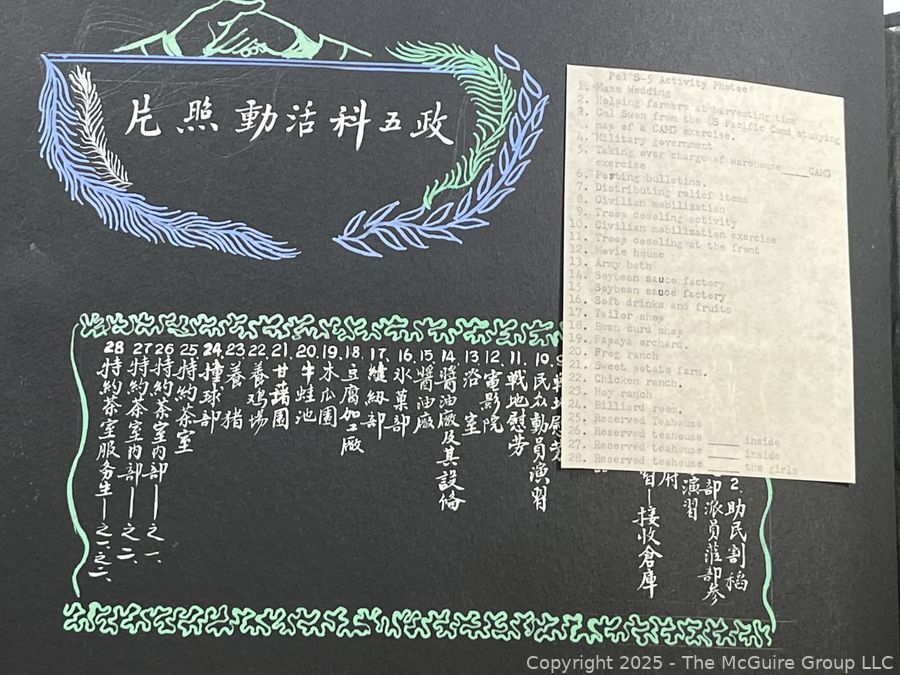 政五科活動照片
Pol S-5 Activity Photos
1. Mass Wedding
2. Helping farmers at harvesting time
3. Col Swen from the US Pacific Comd studying
map of a CAMG exercise.
4. Military government
5. Taking over charge of warehouse_____CAMG
exercise
6. Posting bulletins.
7. Distributing relief items
8. Civilian mobilization
9. Troop consling activity
10. Civilian mobilization exercise
11. Troop consling at the front
12. Movie house
13. Army bath
14. Soybean sauce factory
15 Soybean sauce factory
16. Soft drinks and fruits
17. Tailor shop
18. Bean curd shop
19. Papaya orchard.
20. Frog ranch
21. Sweet potato farm.
22. Chicken ranch.
23. Hog ranch
24. Billiard room.
25. Reserved Teahouse
26. Reserved teahouse _____ inside
27. Reserved teahouse _____ inside
28. Reserved teahouse _____ the girls
2. 助民割稻
部派員蒞部參
演習
府
習—接收倉庫
10. 民众動員演習
11. 戰地慰劳
12. 電影院
13. 浴室
14. 醬油廠及其設俻
15 醬油廠
16. 氷菓部
17. 縫紉部
18. 豆腐加工廠
19. 木瓜園
20. 牛蛙池
21. 甘藷園
22 養鸡場
23 養猪
24. 撞球部
25 特約茶室
26 特約茶室內部—之一、
27 特約茶室內部—之二、
28 特約茶室服务生—之一、之二、
Copyright 2025 - The McGuire Group LLC